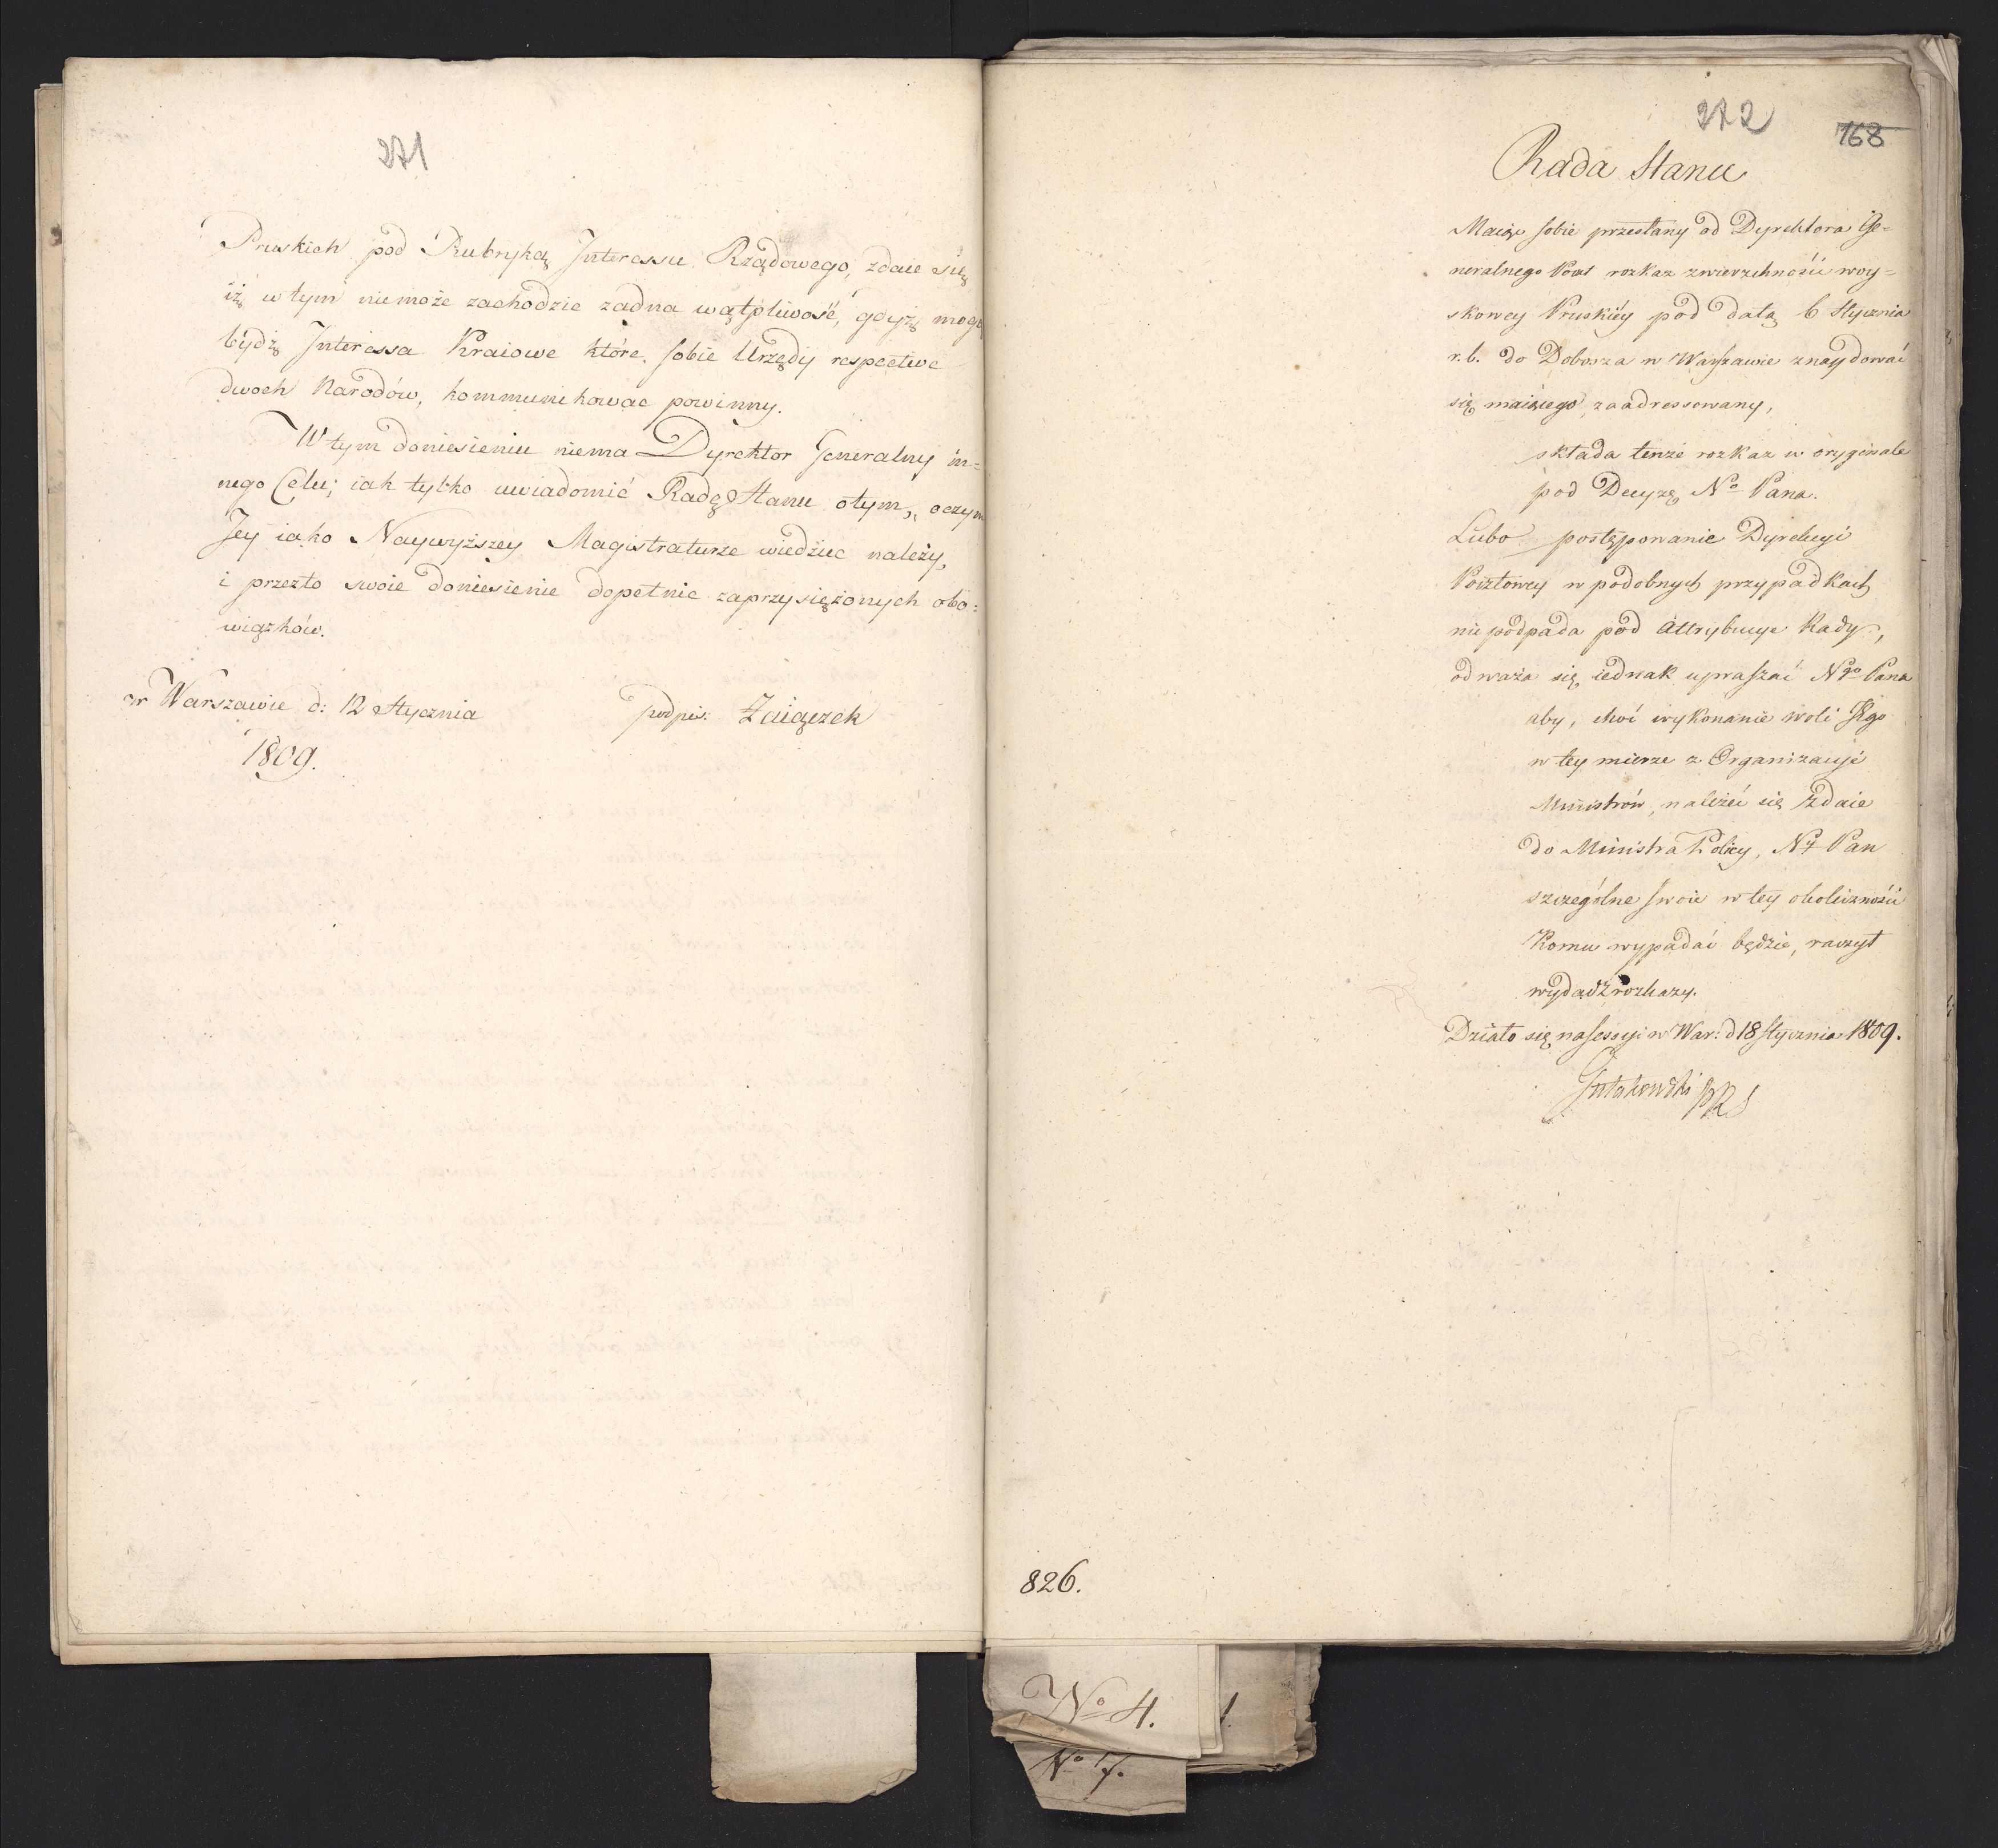 271
Pruskich pod Rubryką Interessu Rządowego, zdaie się
iż w tym niemoże zachodzić zadna wątpliwość, gdyż mogą
bydź Interessa Kraiowe które sobie Urzędy respective
dwoch Narodów, kommunikować powinny.
W tym doniesieniu niema Dyrektor Generalny in=
nego Celu; iak tylko uwiadomić Radę Stanu otym, oczym
Jey iako Naywyższey Magistraturze wiedzieć należy,
i przezto swoie doniesienie dopełnić zaprzysiężonych obo=
wiązków.
w Warszawie d: 12 Stycznia podpis: Zaiączek
1809.
272
168
Rada Stanu
Maiąc sobie przesłany od Dyrektora Ge=
neralnego Poczt rozkaz zwierzchności woy=
skowey Pruskiéy pod datą 6 Stycznia
r. b. do Dobosza w Warszawie znaydować
się maiącego zaadressowany,
składa tenże rozkaz w oryginale
pod Decyzę No Pana.
Lubo postępowanie Dyrekcyi
Pocztowey w podobnych przypadkach
nie podpada pod Attrybucye Rady,
odważa się iednak upraszać Ngo Pana
aby, choć wykonanie woli Jego
w tey mierze z Organizacyi
Ministrów, należeć się zdaie
do Ministra Policy, Ny Pan
szczególne swoie w tey okoliczności
Komu wypadać będzie, raczył
wydadź rozkazy.
Działo się na Sessyi w War: d 18 Stycznia 1809.
Gutakowski PRS
826.
No 4.
1.
No 7.